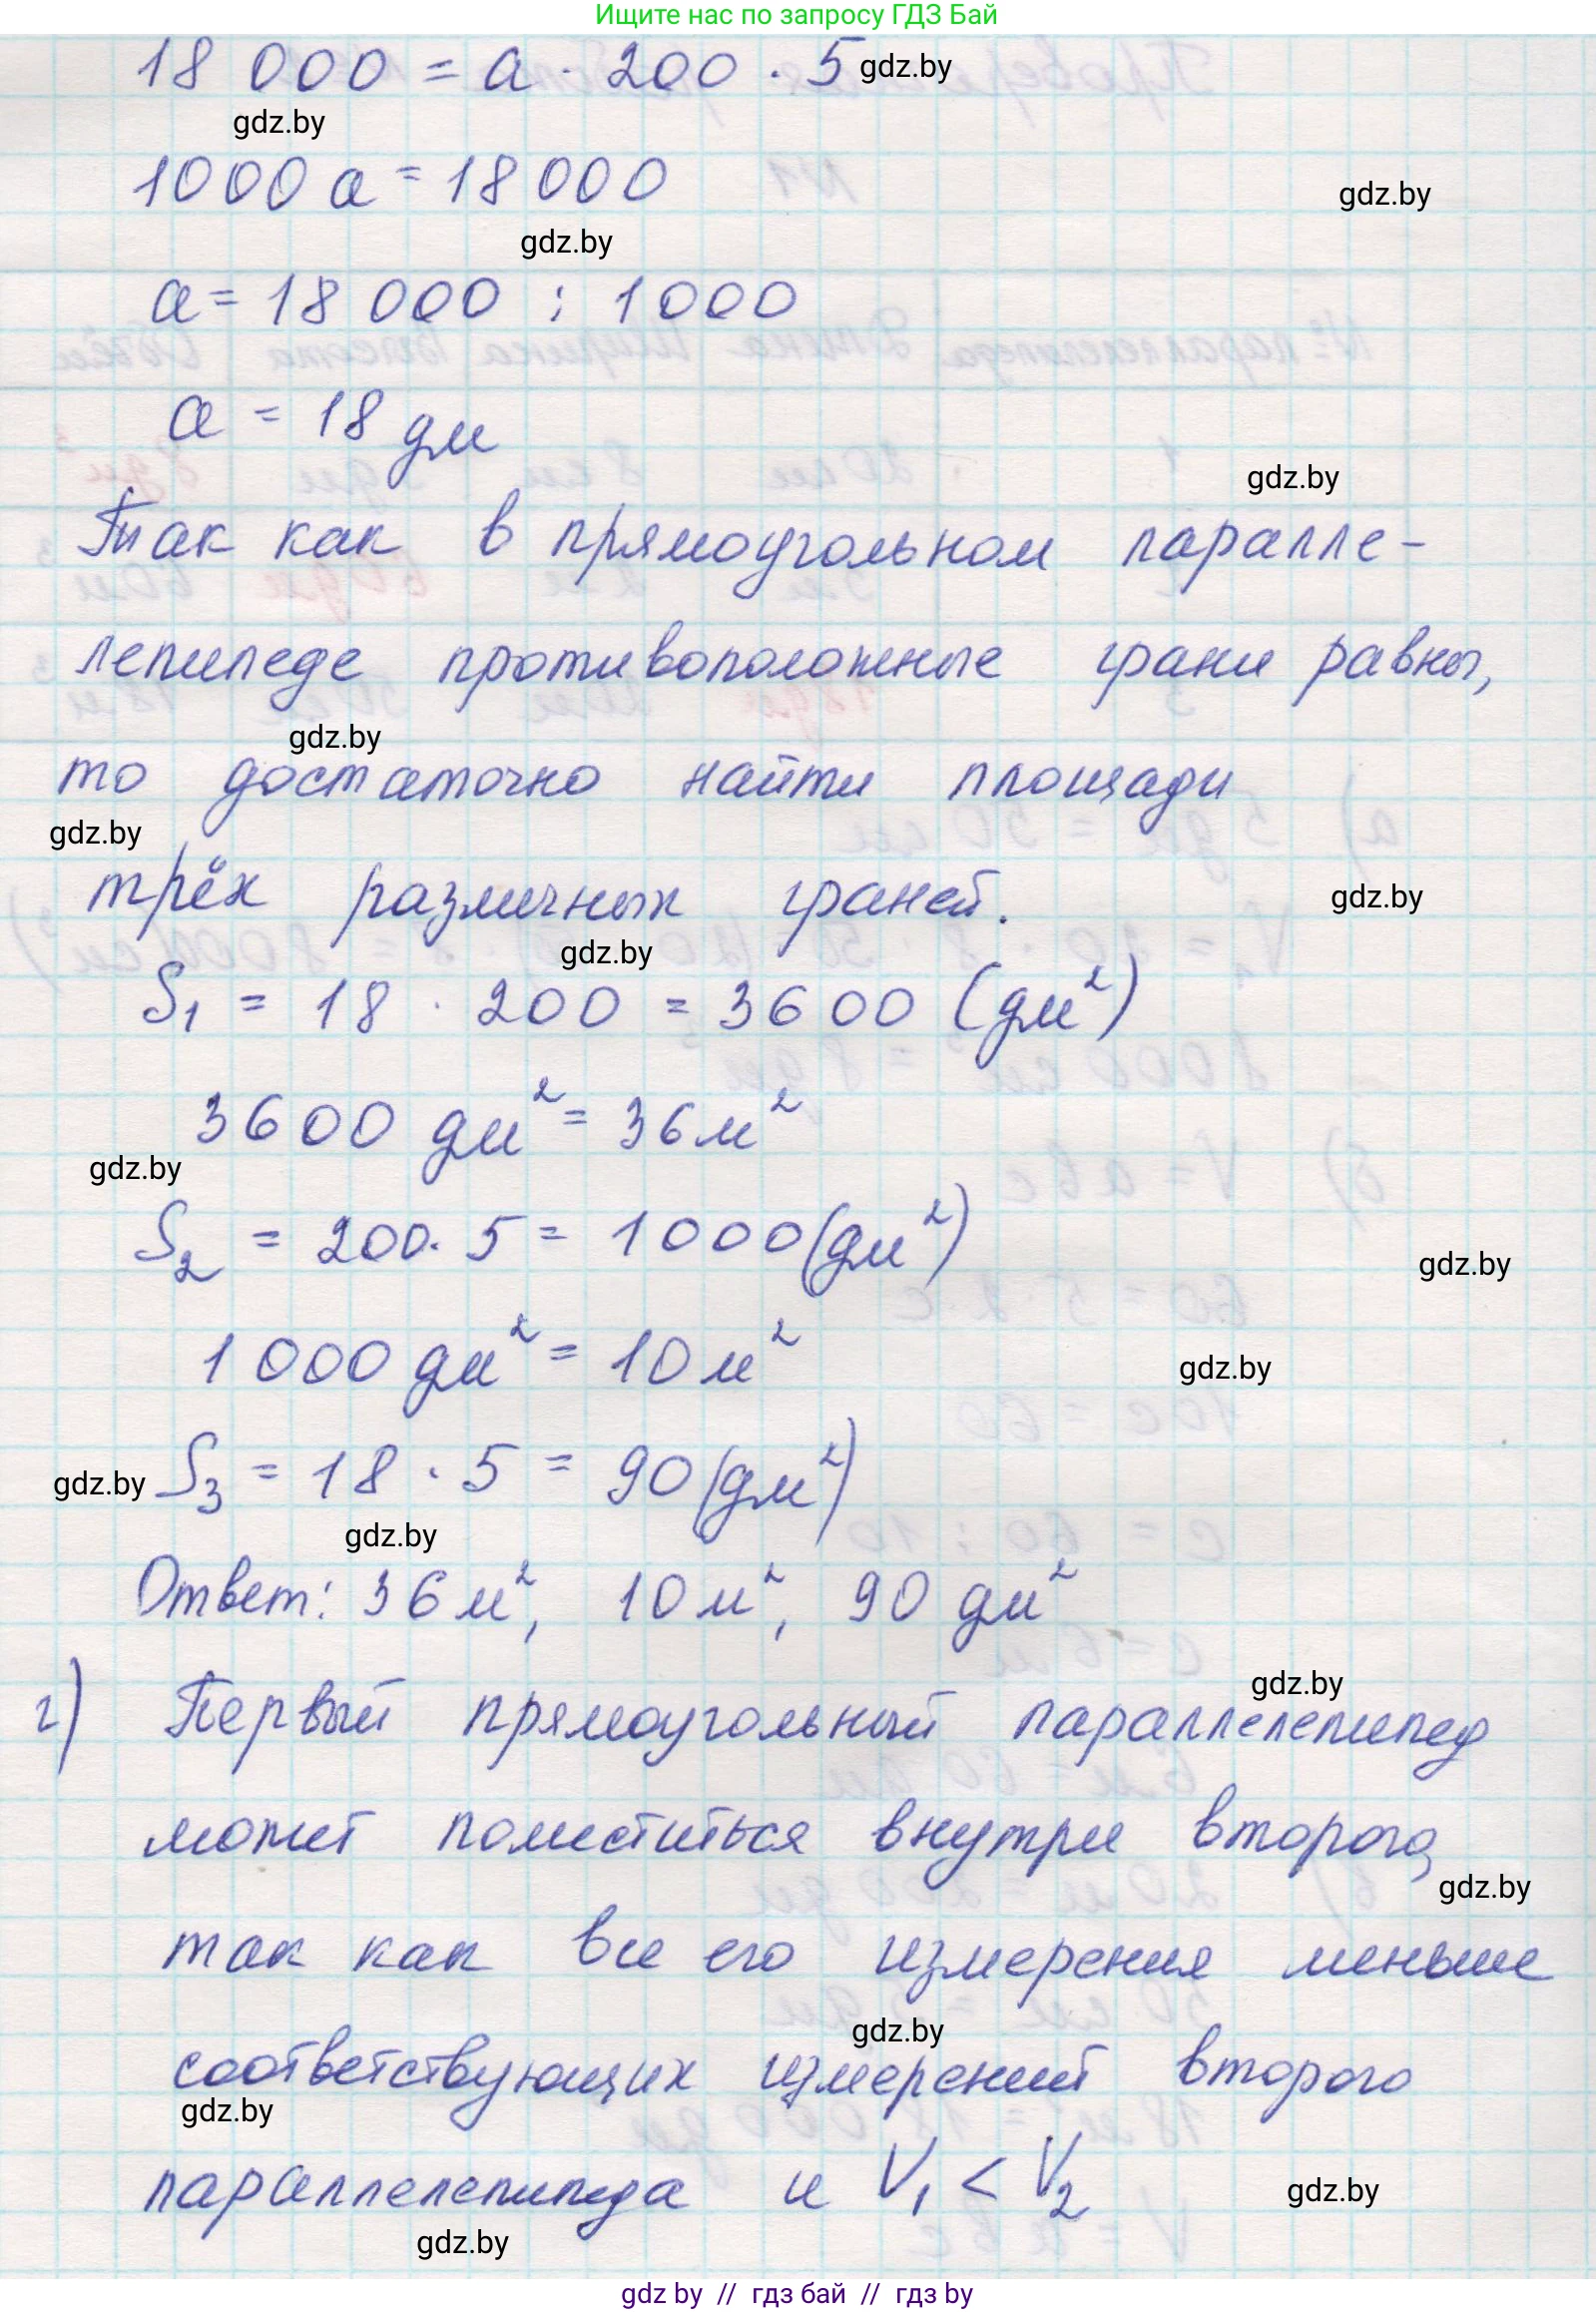 Ищите нас по запросу ГДЗ Бай
18 000 = a · 200 · 5 gdz.by
gdz.by
1000 a = 18 000
gdz.by
gdz.by
a = 18 000 : 1000
a = 18 дм
gdz.by
Так как в прямоугольном паралле-
лепипеде противоположные грани равны,
gdz.by
то достаточно найти площади
gdz.by
трёх различных граней.
gdz.by
gdz.by
S₁ = 18 · 200 = 3600 (дм²)
3600 дм² = 36 м²
gdz.by
S₂ = 200 · 5 = 1000 (дм²)
gdz.by
1000 дм² = 10 м²
gdz.by
gdz.by S₃ = 18 · 5 = 90 (дм²)
gdz.by
Ответ: 36 м², 10 м², 90 дм²
gdz.by
г) Первый прямоугольный параллелепипед
может поместиться внутри второго,
gdz.by
так как все его измерения меньше
gdz.by
соответствующих измерений второго
gdz.by
параллелепипеда и V₁ < V₂
gdz.by
gdz.by
gdz by // гдз бай // гдз by